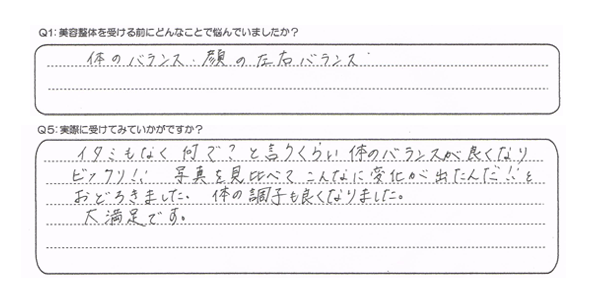 Q1:美容整体を受ける前にどんなことで悩んでいましたか?
体のバランス・顔の左右バランス
Q5:実際に受けてみていかがですか?
イタミもなく何で?と言うくらい体のバランスが良くなり
ビックリ!! 写真を見比べてこんなに変化が出たんだ!!と
おどろきました。体の調子も良くなりました。
大満足です。